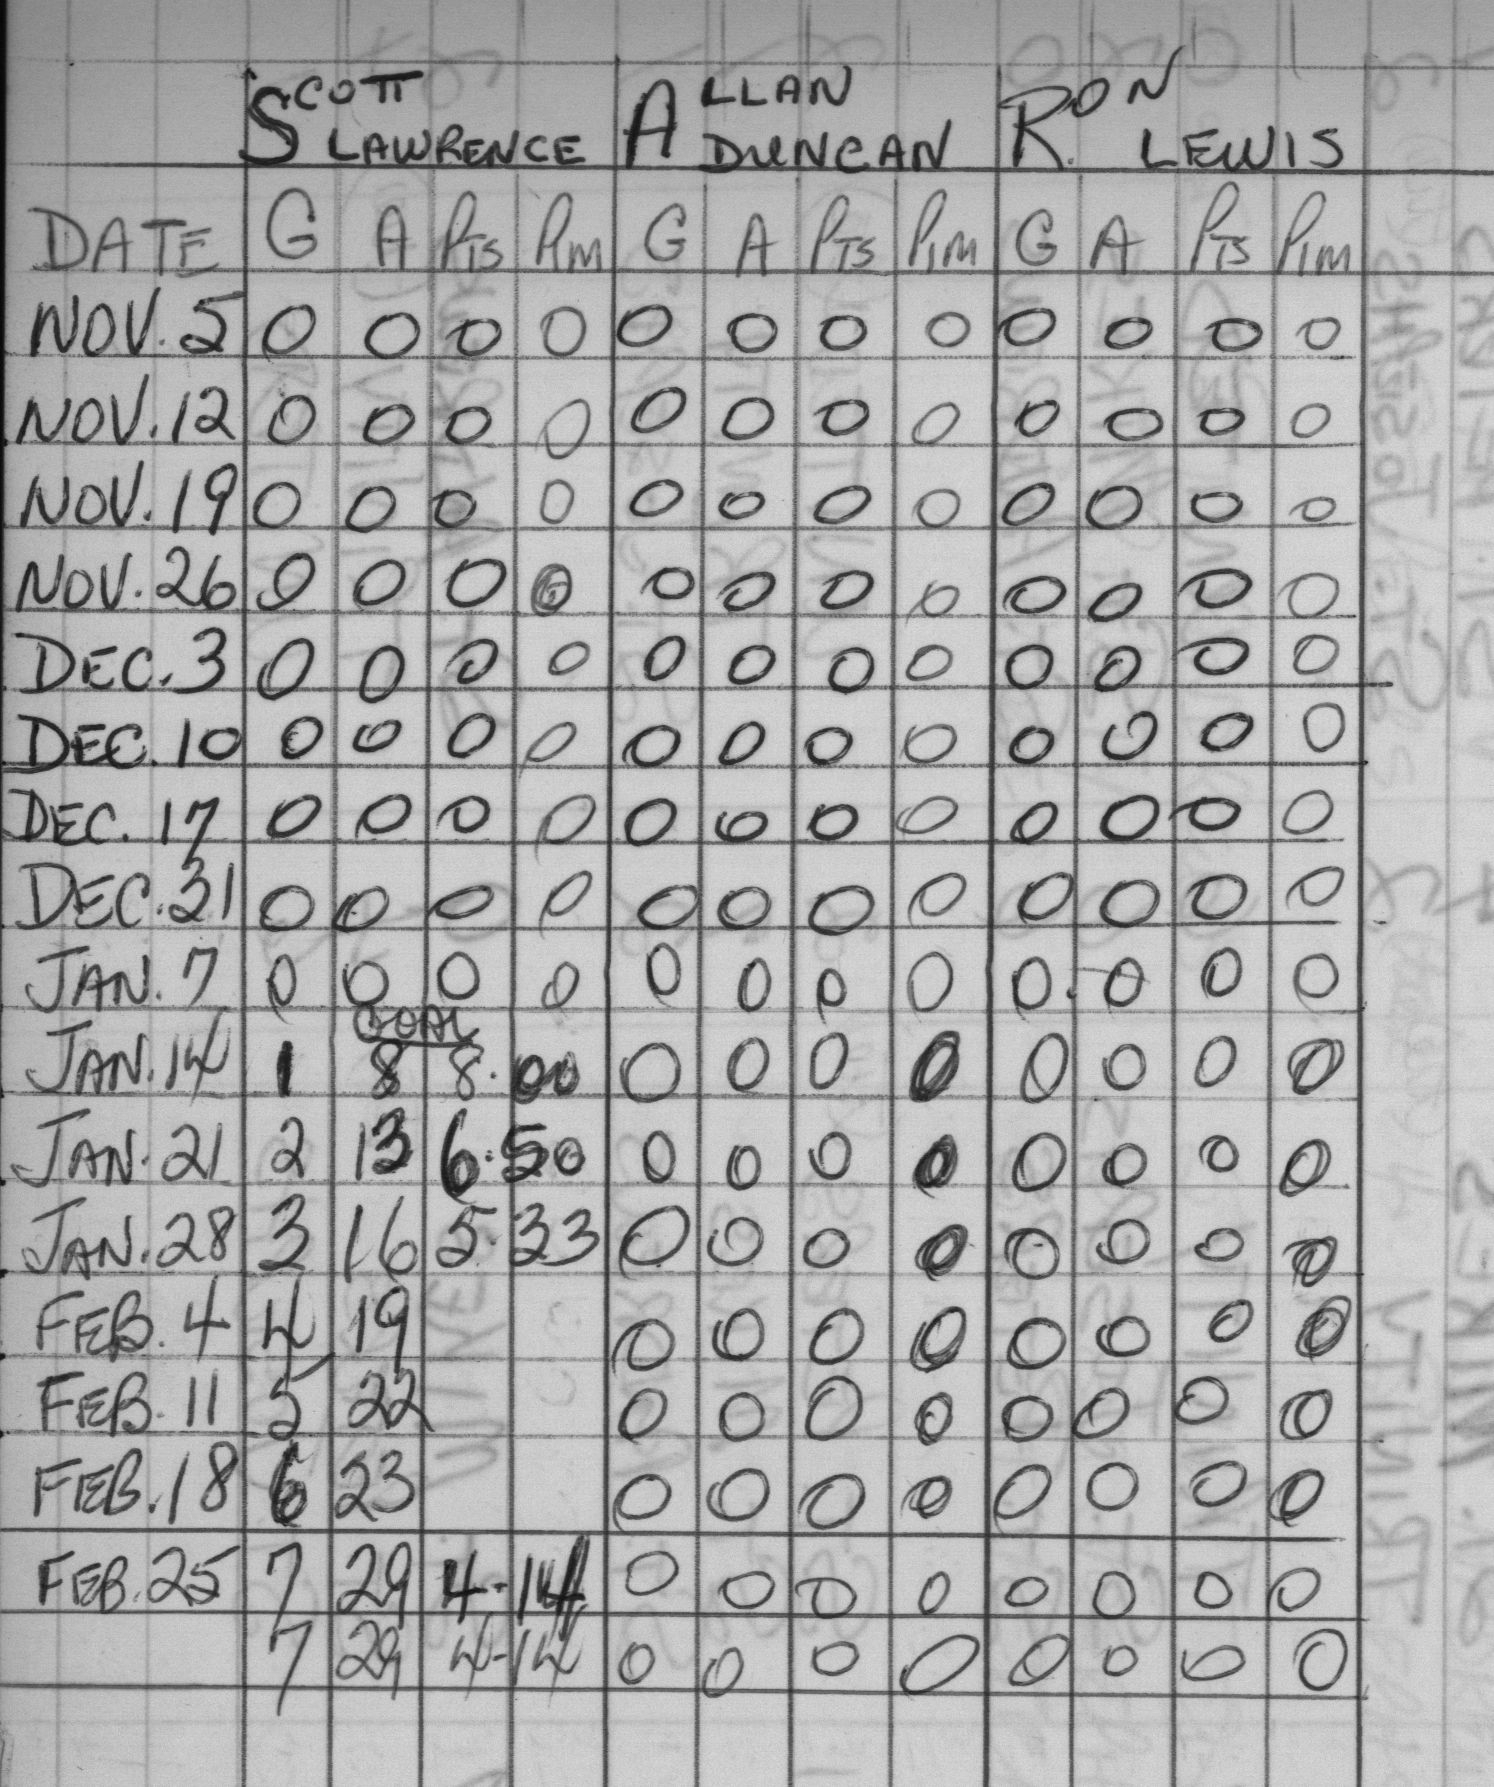 SCOTT LAWRENCE ALLAN DUNCAN RON LEWIS
DATE G A PTS PIM G A PTS PIM G A PTS PIM
NOV. 5 0 0 0 0 0 0 0 0 0 0 0 0
NOV. 12 0 0 0 0 0 0 0 0 0 0 0 0
NOV. 19 0 0 0 0 0 0 0 0 0 0 0 0
NOV. 26 0 0 0 0 0 0 0 0 0 0 0 0
DEC. 3 0 0 0 0 0 0 0 0 0 0 0 0
DEC. 10 0 0 0 0 0 0 0 0 0 0 0 0
DEC. 17 0 0 0 0 0 0 0 0 0 0 0 0
DEC. 31 0 0 0 0 0 0 0 0 0 0 0 0
JAN. 7 0 0 0 0 0 0 0 0 0 0 0 0
GOAL
JAN. 14 1 8 8.00 0 0 0 0 0 0 0 0
JAN. 21 2 13 6.50 0 0 0 0 0 0 0 0
JAN. 28 3 16 5.33 0 0 0 0 0 0 0 0
FEB. 4 4 19 0 0 0 0 0 0 0 0
FEB. 11 5 22 0 0 0 0 0 0 0 0
FEB. 18 6 23 0 0 0 0 0 0 0 0
FEB. 25 7 29 4-14 0 0 0 0 0 0 0 0
7 29 4-14 0 0 0 0 0 0 0 0